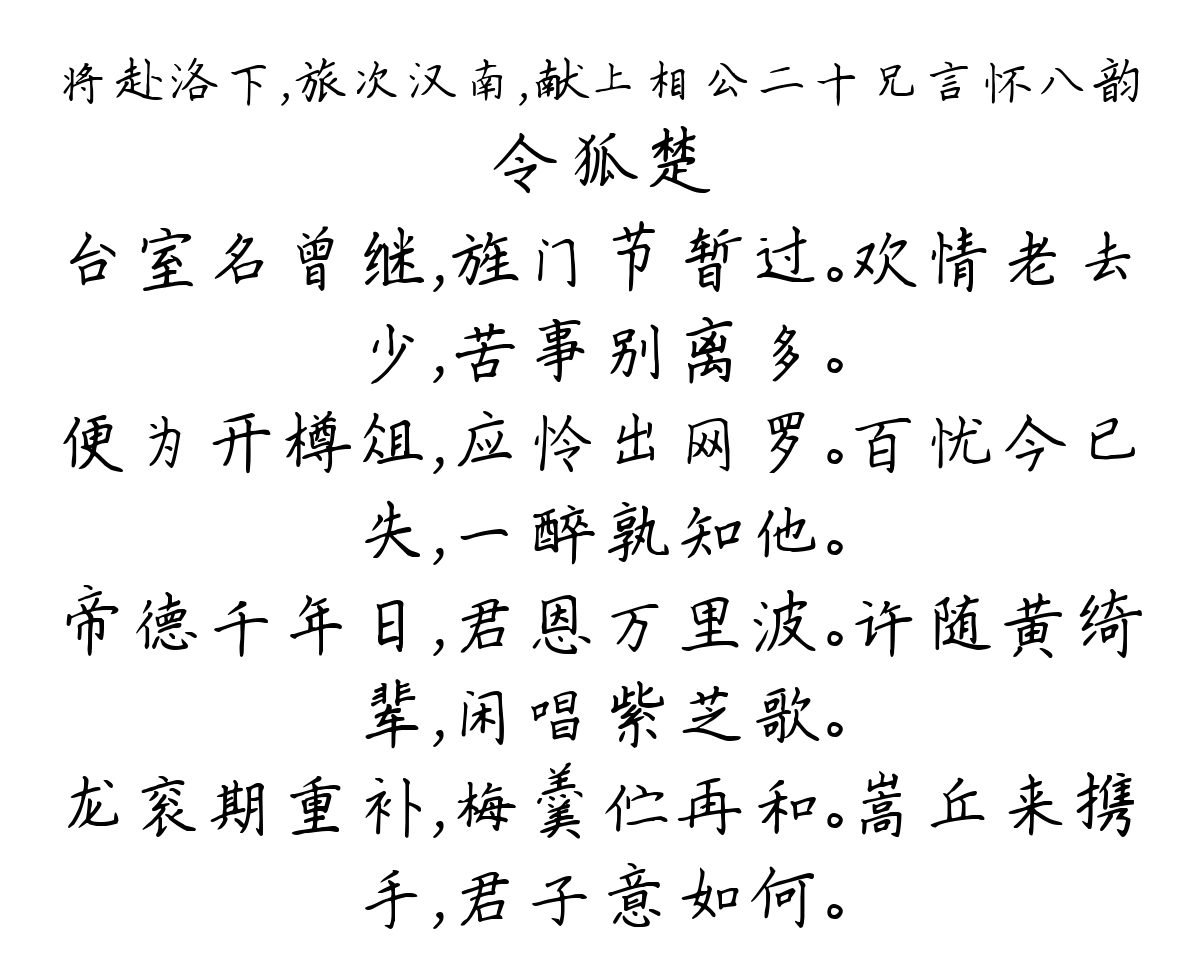 将赴洛下,旅次汉南,献上相公二十兄言怀八韵
令狐楚
台室名曾继,旌门节暂过。欢情老去
少,苦事别离多。
便为开樽俎,应怜出网罗。百忧今已
失,一醉孰知他。
帝德千年日,君恩万里波。许随黄绮
辈,闲唱紫芝歌。
龙衮期重补,梅羹伫再和。嵩丘来携
手,君子意如何。